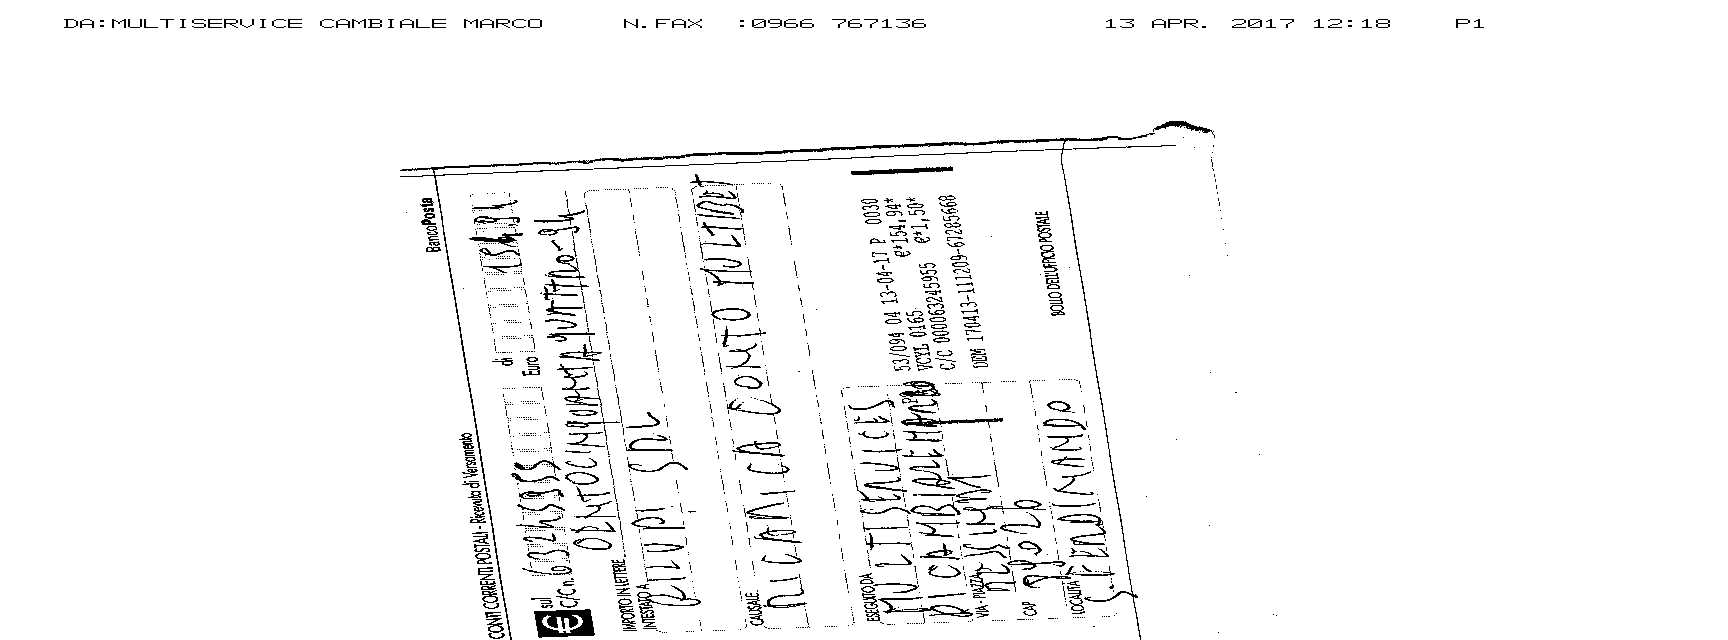 DA:MULTISERVICE CAMBIALE MARCO N.FAX :0966 767136 13 APR. 2017 12:18 P1
CONTI CORRENTI POSTALI - Ricevuta di Versamento BancoPosta
€ sul C/C n. 63245955 di Euro 154,94
CENTOCINQUANTAQUATTRO-94
IMPORTO IN LETTERE
INTESTATO A
BILUPI SRL
CAUSALE
RICARICA CONTO MULTIBET
ESEGUITO DA
MULTISERVICES
DI CAMBIALE MARCO
VIA - PIAZZA
CAP 89020
LOCALITÀ
S. FERDINANDO
53/094 04 13-04-17 P 0030
VCYL 0165 €*154,94*
C/C 000063245955 €*1,50*
DEM 170413-111209-67285668
BOLLO DELL'UFFICIO POSTALE